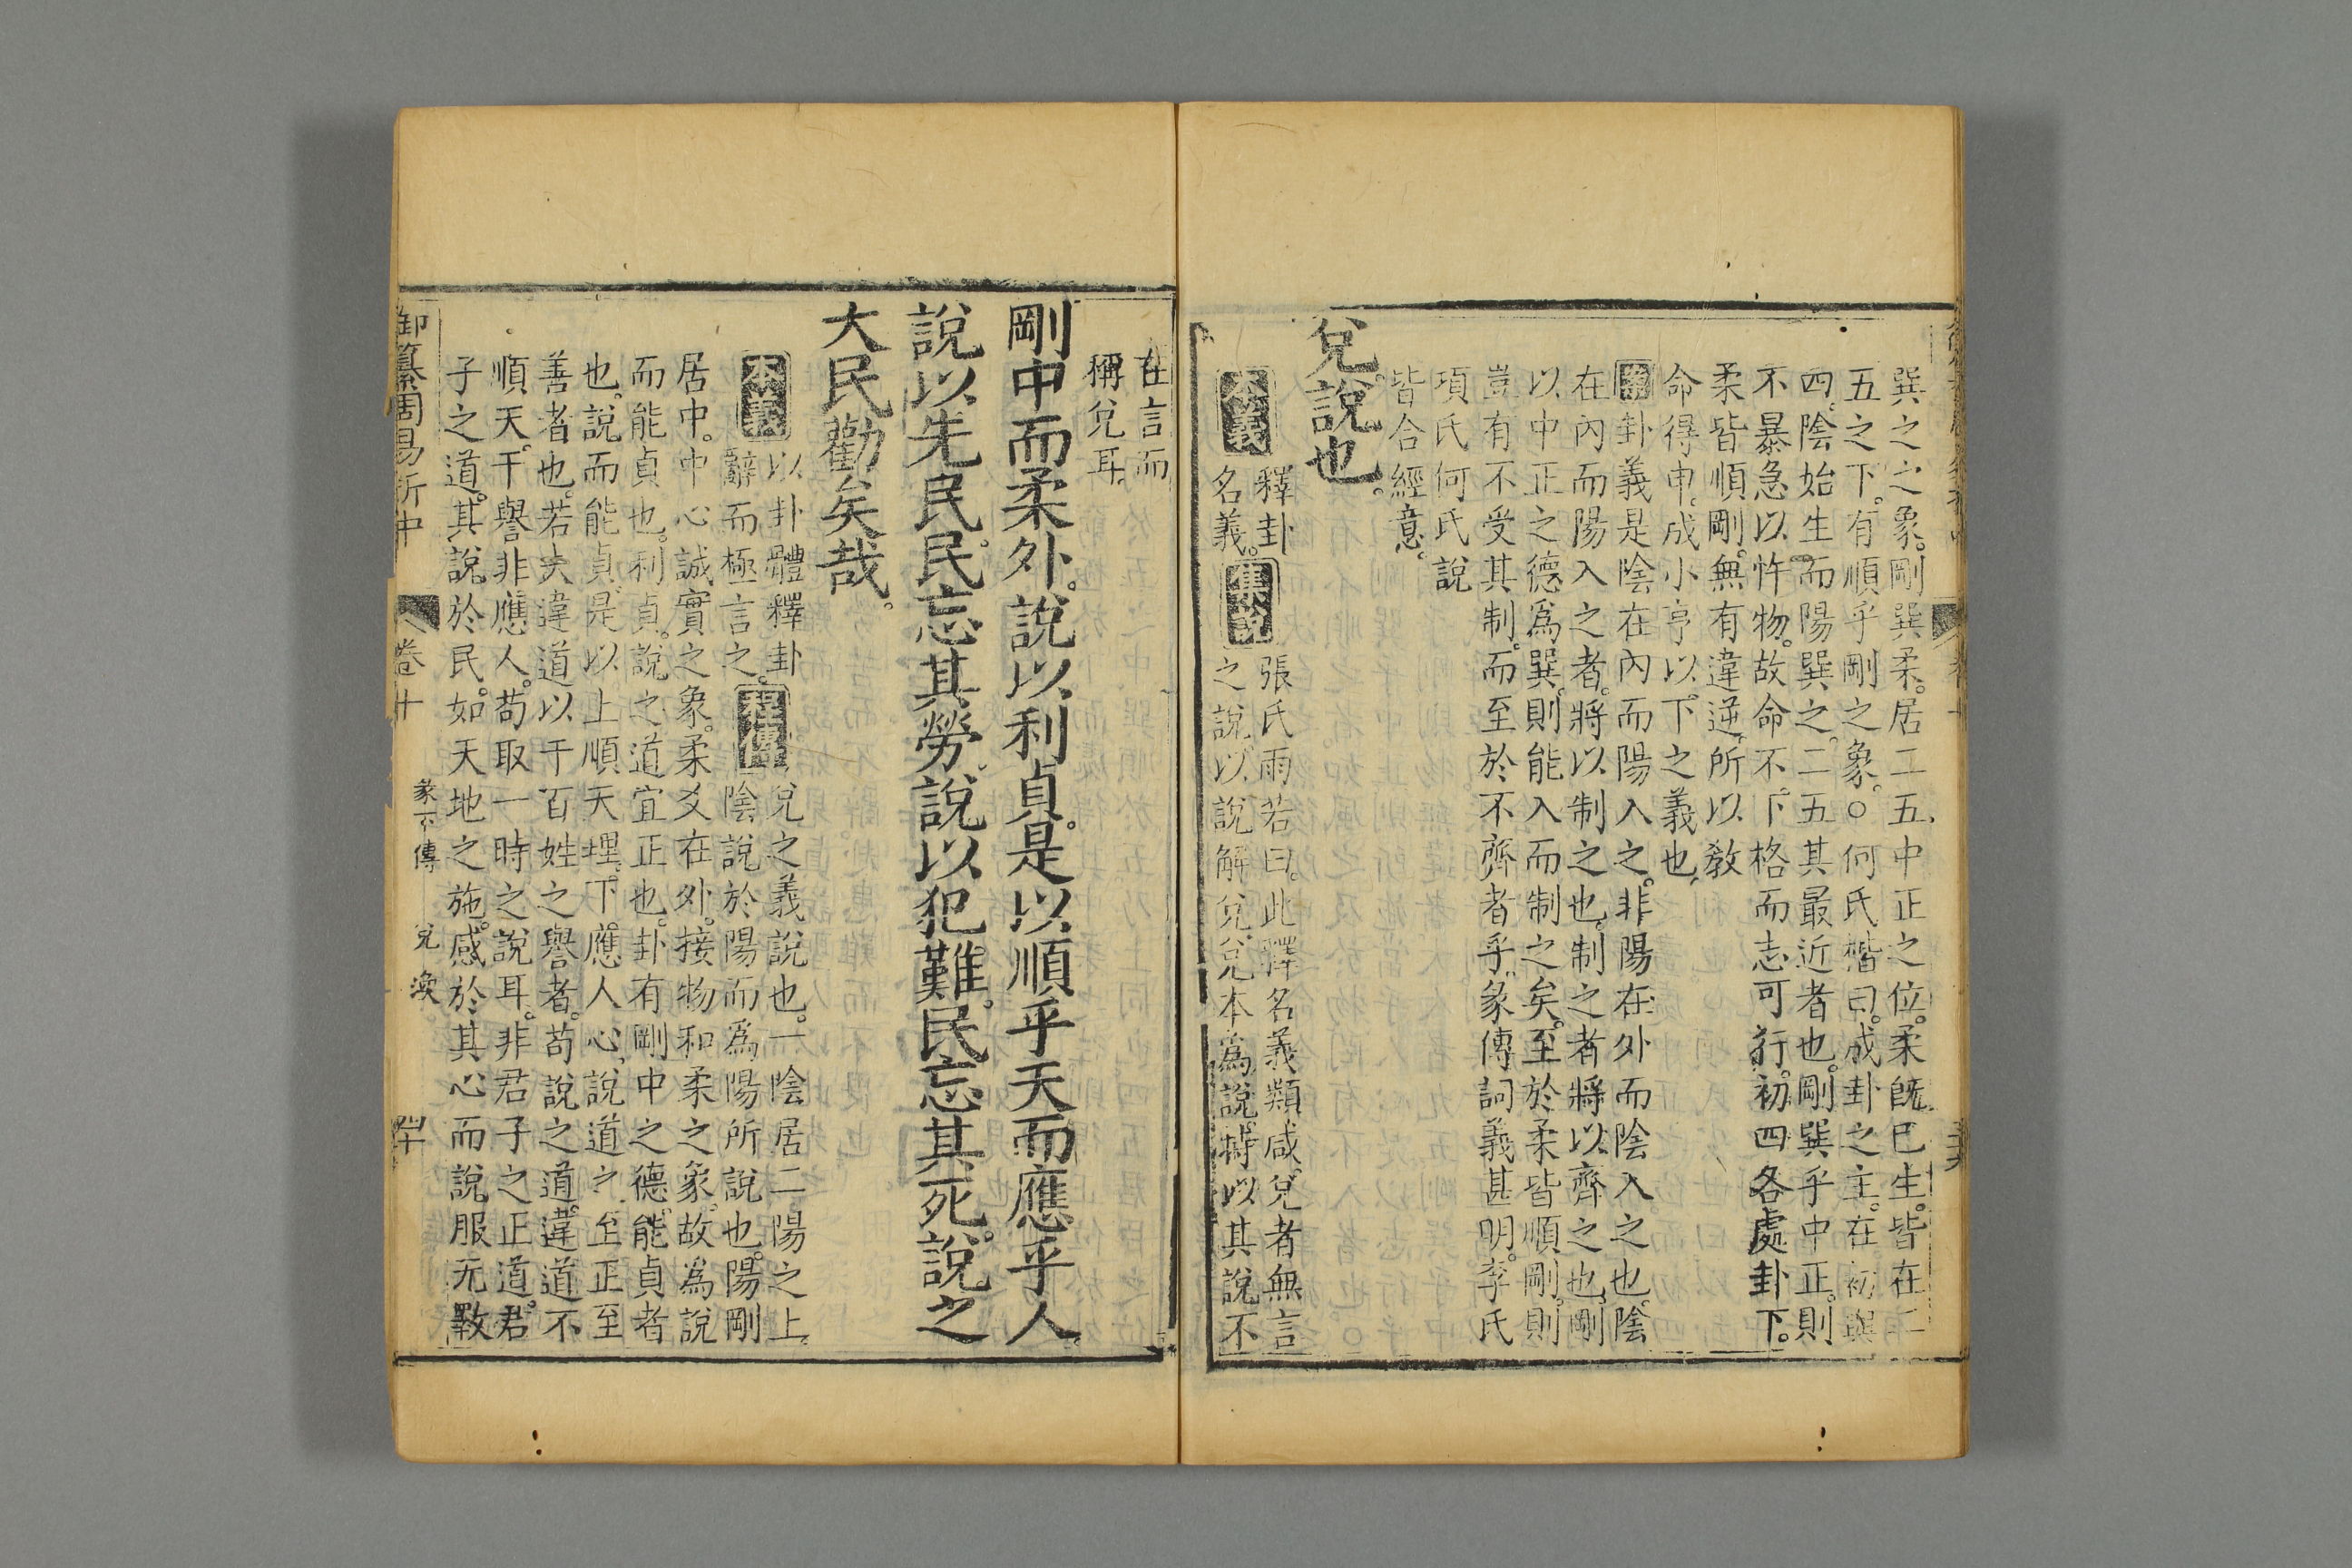 巽之之象。剛巽柔。居二五中正之位。柔旣巳生。皆在二
五之下。有順乎剛之象。○何氏楷曰。成卦之主。在初與
四。陰始生而陽巽之。二五其最近者也。剛巽乎中正。則
不暴急以忤物。故命不下格而志可行。初四各處卦下。
柔皆順剛。無有違逆。所以敎
命得申。成小亨以下之義也。
案卦義是陰在內而陽入之。非陽在外而陰入之也。陰
在內而陽入之者。將以制之也。制之者將以齊之也。剛
以中正之德爲巽。則能入而制之矣。至於柔皆順剛。則
豈有不受其制。而至於不齊者乎。彖傳詞義甚明。李氏
項氏何氏說
皆合經意。
兌說也。
本義
釋卦
名義。
集說
張氏雨若曰。此釋名義類咸。兌者無言
之說。以說解兌。兌本爲說。特以其說不
在言而
稱兌耳。
剛中而柔外。說以利貞。是以順乎天而應乎人。
說以先民。民忘其勞。說以犯難。民忘其死。說之
大。民勸矣哉。
本義
以卦體釋卦
辭而極言之。
程傳
兌之義說也。一陰居二陽之上。
陰說於陽而爲陽所說也。陽剛
居中。中心誠實之象。柔爻在外。接物和柔之象。故爲說
而能貞也。利貞。說之道宜正也。卦有剛中之德。能貞者
也。說而能貞。是以上順天理。下應人心。說道之至正至
善者也。若夫違道以干百姓之譽者。苟說之道。違道不
順天。干譽非應人。苟取一時之說耳。非君子之正道。君
子之道。其說於民。如天地之施。感於其心而說服无斁
御纂周易折中
卷十
彖下傳
兌
渙
四十